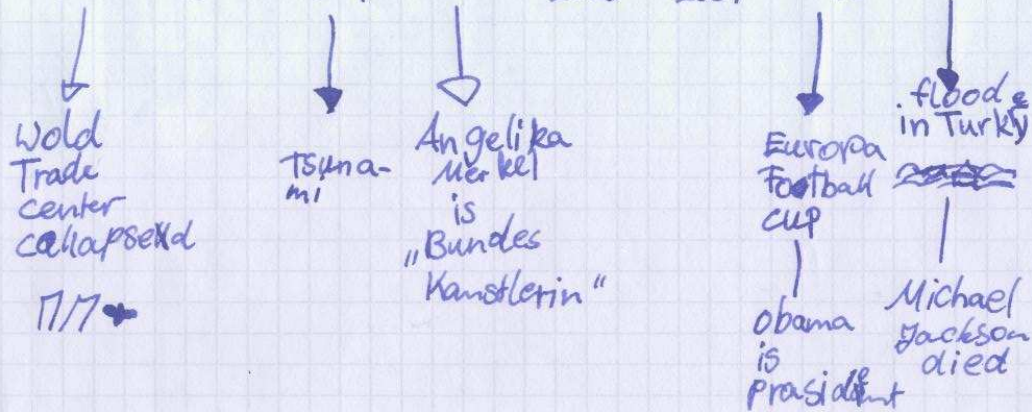 Wold
Trade
center
collapsed
Tsuna-
mi
Angelika
Merkel
is
„Bundes
Kanstlerin"
Europa
Football
cup
Obama
is
prasident
flood
in Turky
Michael
Jackson
died